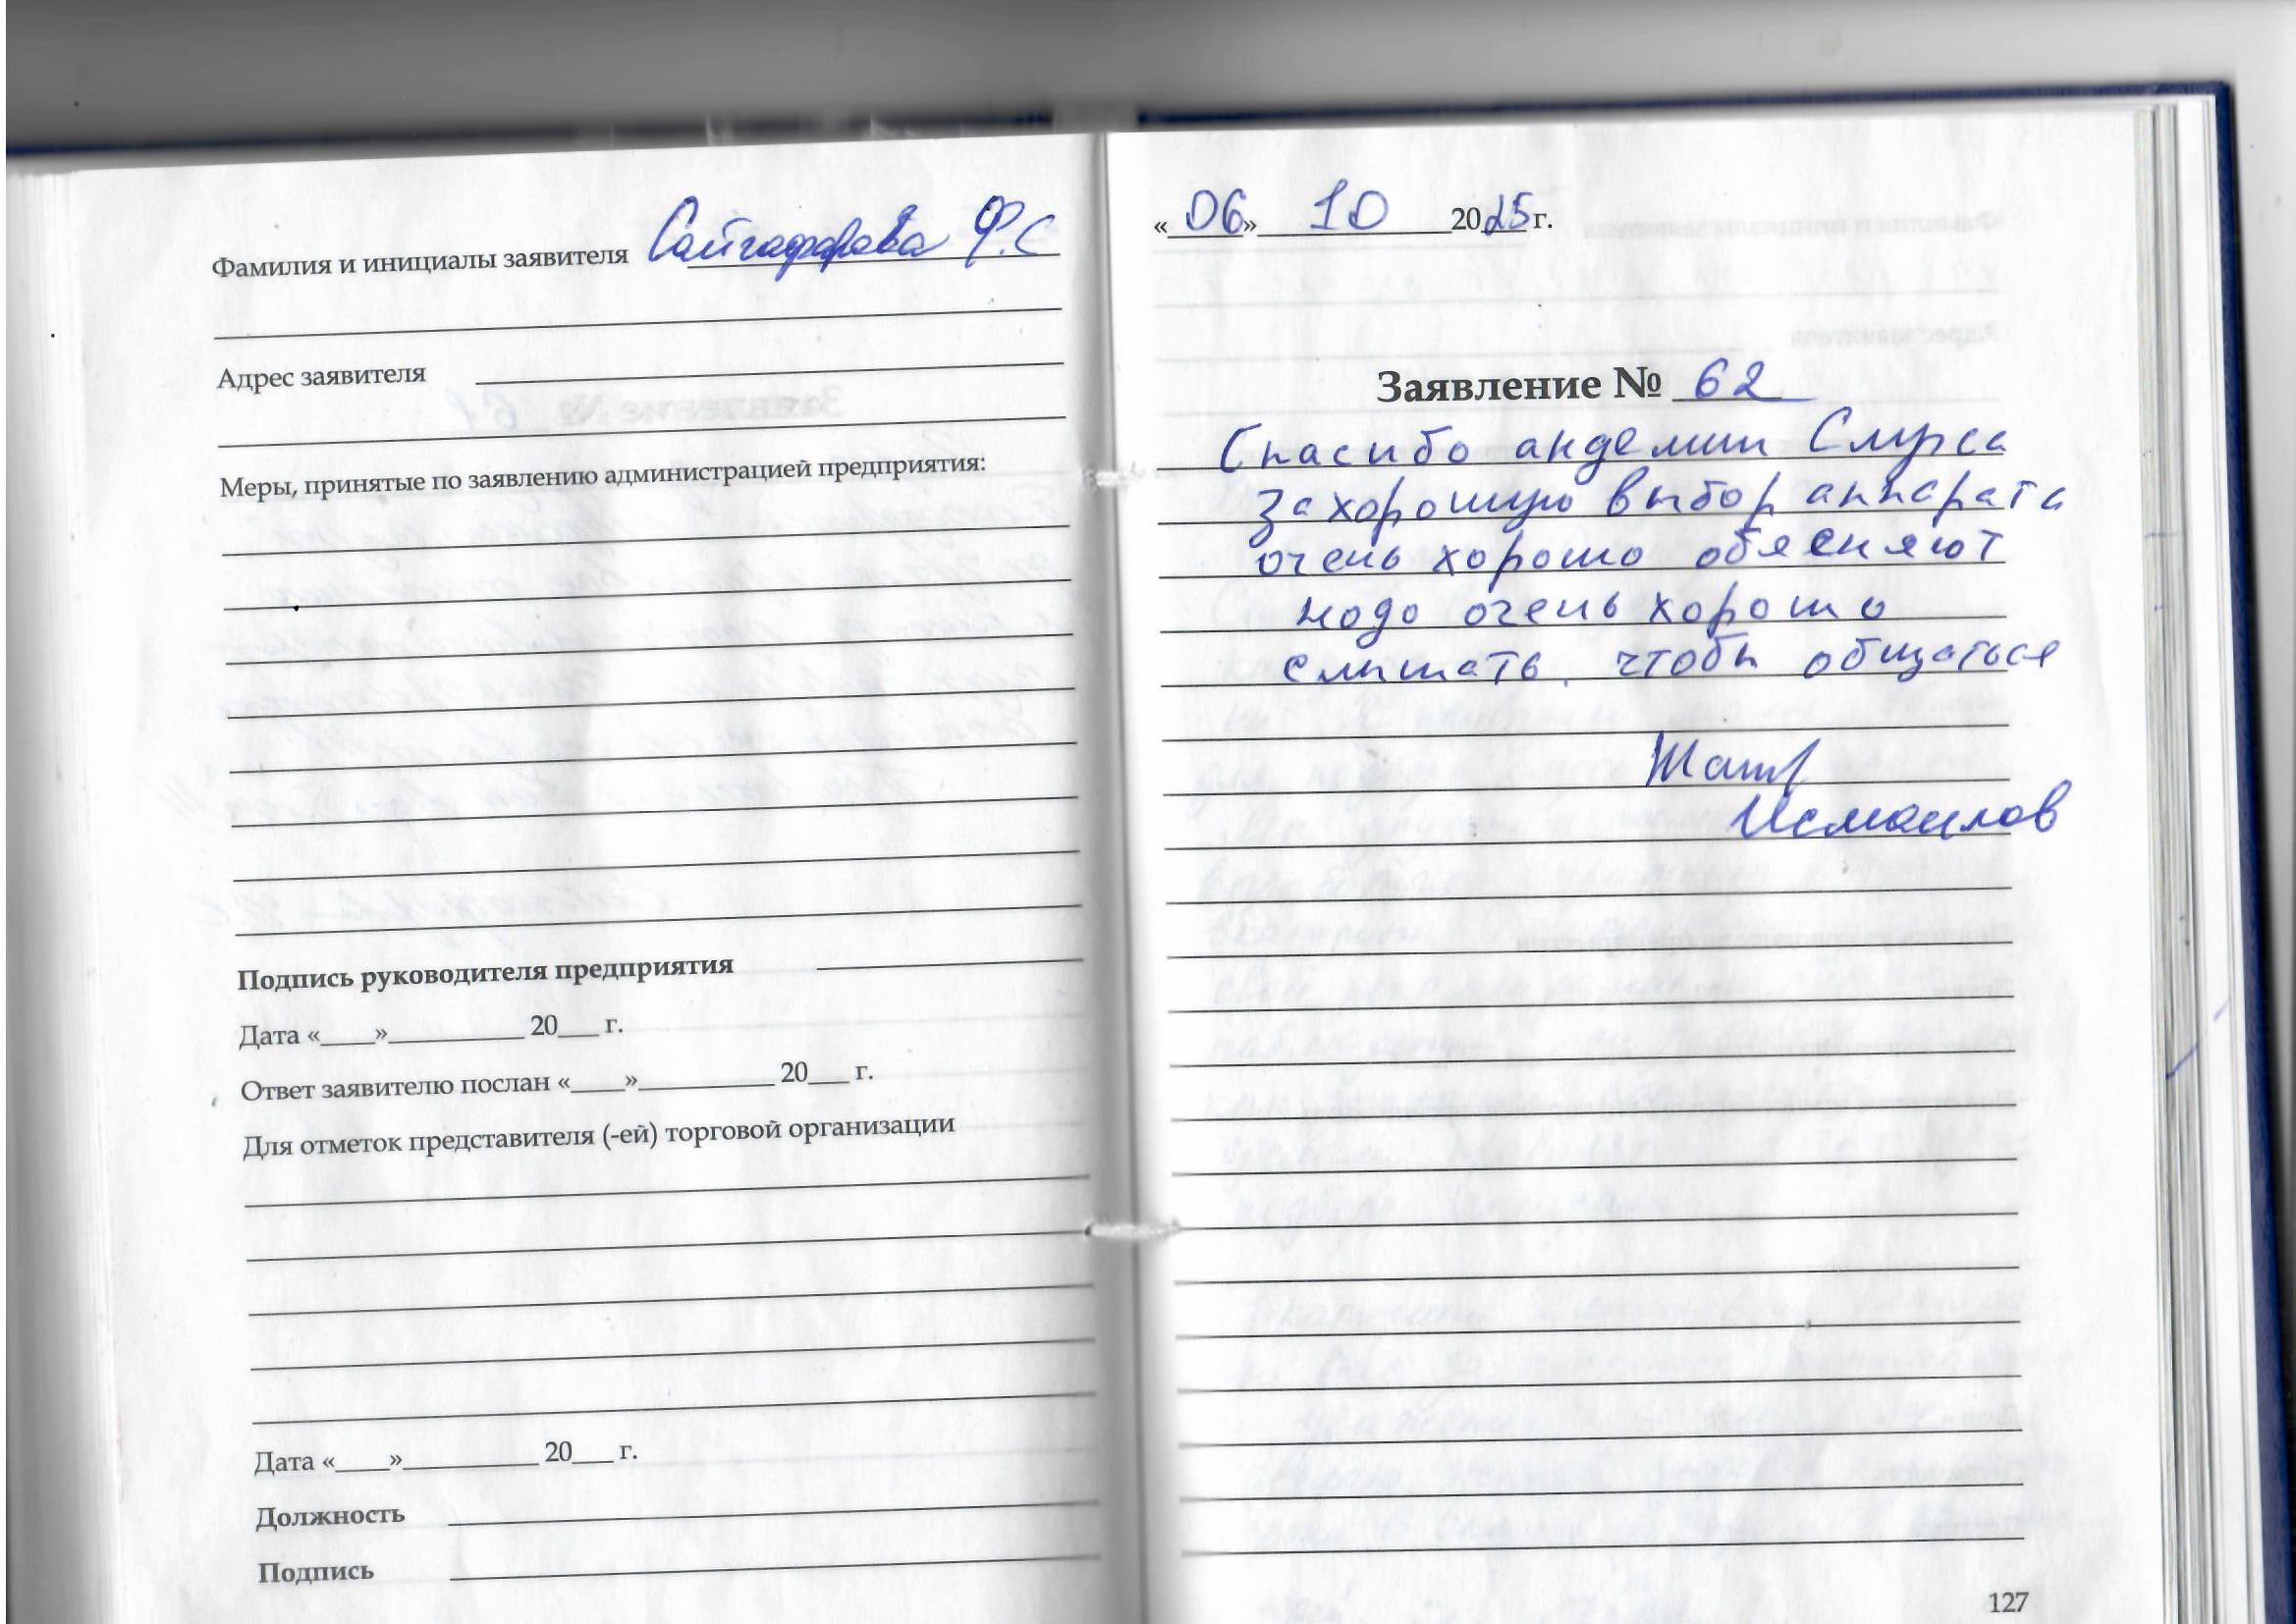 Фамилия и инициалы заявителя Сайгафарова Ф.С
Адрес заявителя
Меры, принятые по заявлению администрацией предприятия:
Подпись руководителя предприятия
Дата «____»__________ 20___ г.
Ответ заявителю послан «____»__________ 20___ г.
Для отметок представителя (-ей) торговой организации
Дата «____»__________ 20___ г.
Должность
Подпись
«06» 10 2025 г.
Заявление № 62
Спасибо андемии Слуса
за хорошую выбор аппарата
очень хорошо обясняют
надо очень хорошо
слышать, чтобы общаться
Исмаилов
127